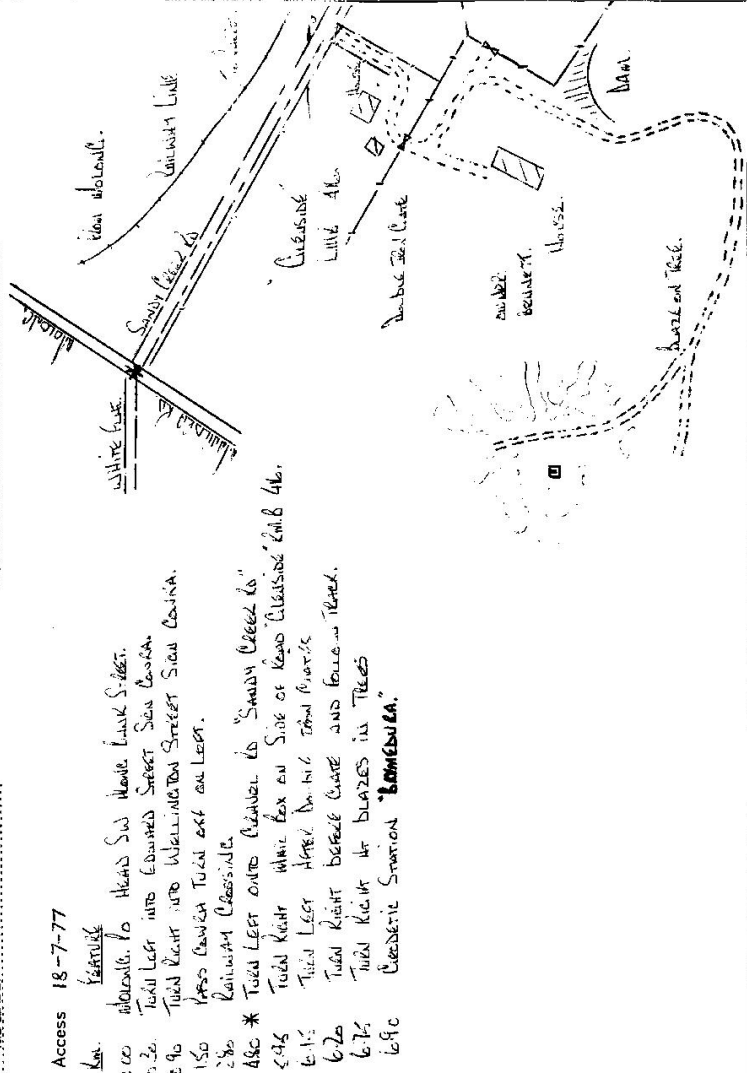 Access 18-7-77
Km. FEATURE
MOLONG. PO HEAD SW ALONG BANK STREET.
TURN LEFT INTO EDWARD STREET SIGN COWRA.
TURN RIGHT INTO WELLINGTON STREET SIGN COWRA.
PASS COWRA TURN OFF ON LEFT.
RAILWAY CROSSING.
* TURN LEFT ONTO GRAVEL RD "SANDY CREEK RD"
TURN RIGHT MAIL BOX ON SIDE OF ROAD "GLENSIDE" R.M.B
TURN LEFT AFTER DOUBLE IRON GATES
6.20 TURN RIGHT BEFORE GATE AND FOLLOW TRACK.
TURN RIGHT AT BLAZES IN TREES
6.90 GEODETIC STATION
WHITE
MOLONG
SANDY CREEK RD
FROM MOLONG.
RAILWAY LINE
"GLENSIDE"
HOUSE
DOUBLE IRON GATE
OWNER
BENNETT.
HOUSE.
DAM.
BLAZE ON TREE.